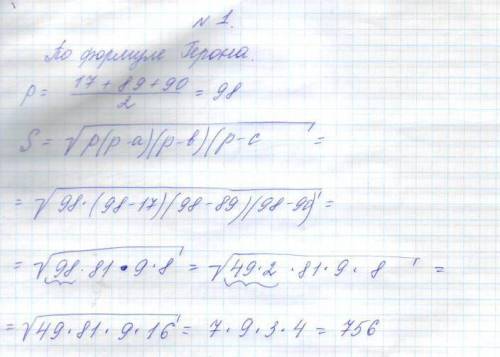 № 1.
По формуле Герона.
p = (17 + 89 + 90)/2 = 98
S = √(p(p-a)(p-в)(p-c =
= √(98·(98-17)(98-89)(98-90) =
= √(98·81·9·8) = √(49·2·81·9·8) =
= √(49·81·9·16) = 7·9·3·4 = 756